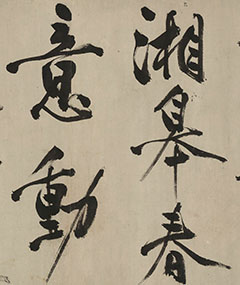 湘皋春
意動